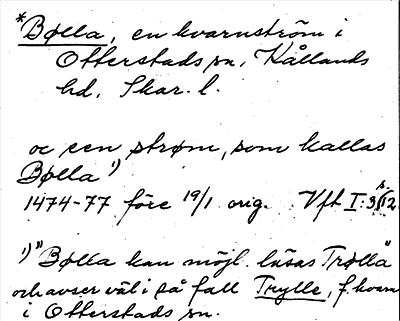 *Bølla, en kvarnström i
Otterstads sn, Kållands
hd, Skar. l.
oc een strøm, som kallas
Bølla ¹)
1474-77 före 19/1 orig. Vft I: s. 12
¹) "Bølla kan möjl. läsas Trølla"
och avser väl i så fall Trylle, f. kvarn
i Otterstads sn.